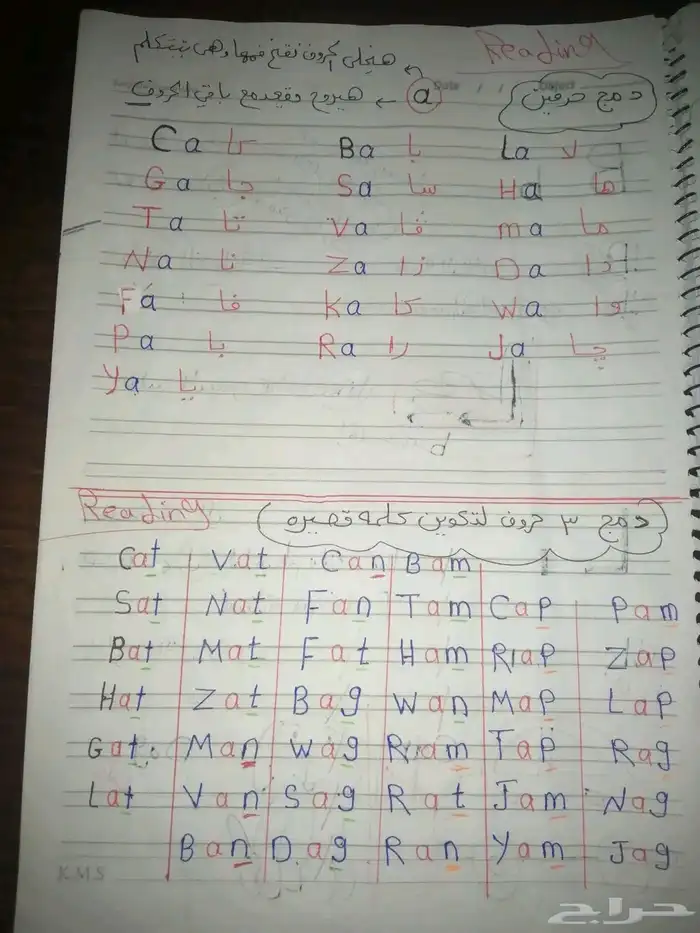 Reading
هيخلي الحروف تفتح فمها وهي بتتكلم
دمج حرفين
a ← هيروح ويقعد مع باقي الحروف
Ca كا Ba با La لا
Ga جا Sa سا Ha ها
Ta تا Va فا ma ما
Na نا Za زا Da دا
Fa فا Ka كا Wa وا
Pa با Ra را Ja جا
Ya يا
d
Reading
دمج ٣ حروف لتكوين كلمه قصيره
Cat Vat Can Bam
Sat Nat Fan Tam Cap Pam
Bat Mat Fat Ham Rap Zap
Hat Zat Bag Wan Map Lap
Gat Man Wag Ram Tap Rag
Lat Van Sag Rat Jam Nag
Ban Dag Ran Yam Jag
KMS
حراج